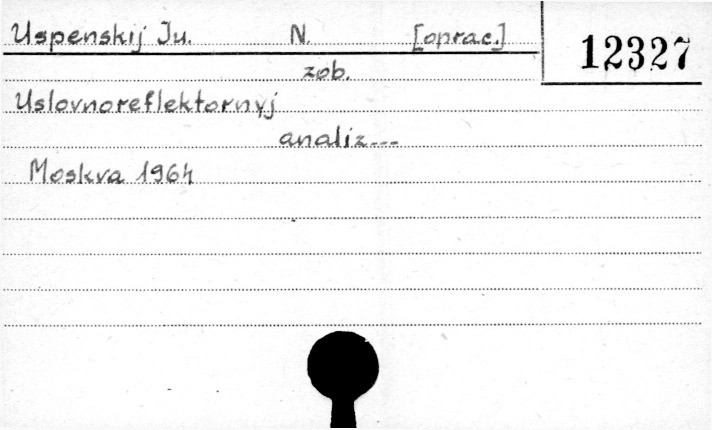 Uspenskij Ju. N. [oprac.]
12327
zob.
Uslovnoreflektornyj
analiz---
Moskva 1964